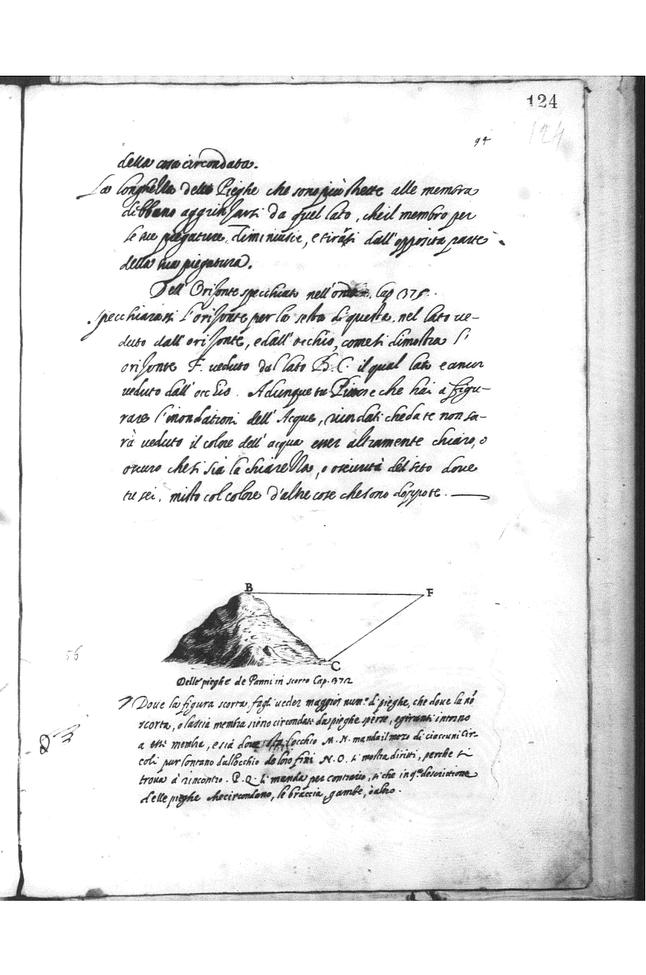 124
94
124
della cosa circondata.
La longhezza delle Pieghe che sono più strette alle membra
debbano aggrinzarsi da quel lato, che il membro per
le sue piegature diminuisce, e tirarsi dall'opposita parte
della sua piegatura.
Dell'Orizonte specchiato nell'onde. Cap 375.
Specchiarassi l'orizonte per la sesta di questa nel lato ve-
duto dall'orizonte, e dall'occhio, come si dimostra l'
orizonte F. veduto dal lato B.C. il qual lato e ancor
veduto dall'occhio. Adunque tu Pittore che hai a figu-
rare l'inondationi dell'Acque, ricordati che da te non sa-
rà veduto il colore dell'acqua esser altramente chiaro, o
oscuro che si sia la chiarezza, o oscurità del sito dove
tu sei, misto col colore d'altre cose che sono doppo te.
B
F
C
56
Delle pieghe de Panni in scorto Cap. 372
Dove la figura scorta, fagli veder maggior num.º di pieghe, che dove la nõ
scorta, e le sue membra sieno circondate da pieghe spesse, e giranti intorno
a esse membra, e sia dove sta l'occhio M.N. manda il mezo di ciascuni cir-
coli pur lontano dall'occhio de loro fini N.O. li mostra diritti, perche si
trova a rincontro. P.Q. li manda per contrario, si che in q.ª descrizione
delle pieghe che circondano, le braccia, gambe, o altro.